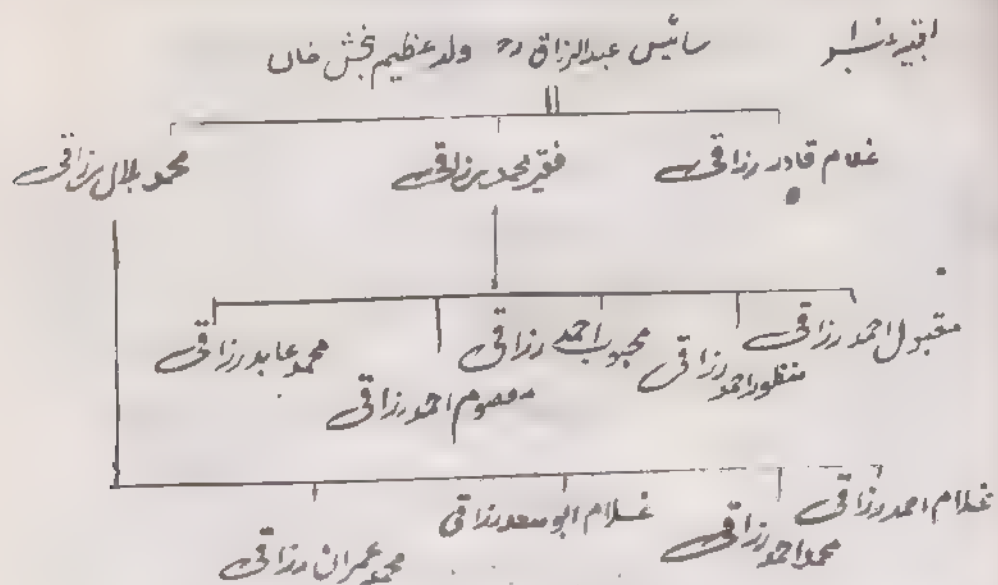 سائیں عبدالرزاق رح ولد عظیم بخش خاں
غلام قادر رزاقی فقیر محمد رزاقی محمد بلال رزاقی
مقبول احمد رزاقی منظور احمد رزاقی محبوب احمد رزاقی معصوم احمد رزاقی محمد عابد رزاقی
غلام احمد رزاقی محمد احمد رزاقی غلام ابو سعد رزاقی محمد عمران رزاقی